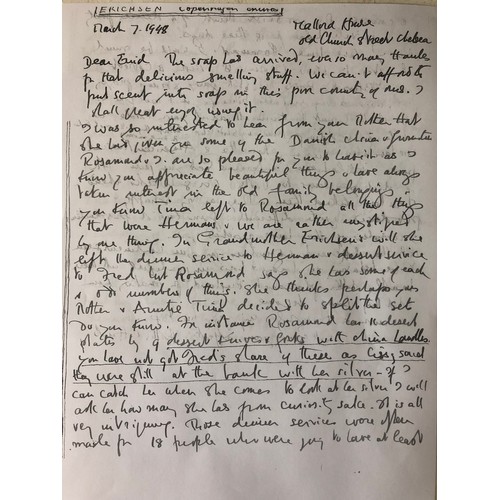 ERICHSEN Copenhagen china
March 7. 1948 Mallord House
Old Church Street Chelsea
Dear Enid The soap has arrived, ever so many thanks
for that delicious smelling stuff. We can't afford to
put scent into soaps in this poor country of ours. I
shall great enjoy using it.
I was so interested to hear from your Mother that
she has given you some of the Danish china &
Rosamund & I are so pleased for you to have it as I
know you appreciate beautiful things & have always
taken interest in the old family belongings.
You know Tina left to Rosamund all the things
that were Hermans & we are rather mystified
by one thing. In Grandmother Erichsen's will she
left the dinner service to Herman & dessert service
to Fred but Rosamund says she has some of each
& odd numbers of things. She thinks perhaps your
Mother & Auntie Tina decided to split the set
do you know. For instance Rosamund has 11 dessert
plates & 9 dessert knives & forks with china handles.
You have not got Fred's share of these as said
they were still at the bank with her silver - if I
can catch her when she comes to look at her silver I will
ask her how many she has from curiosity sake. It is all
very intriguing. Those dinner services were often
made for 18 people who were going to have at least